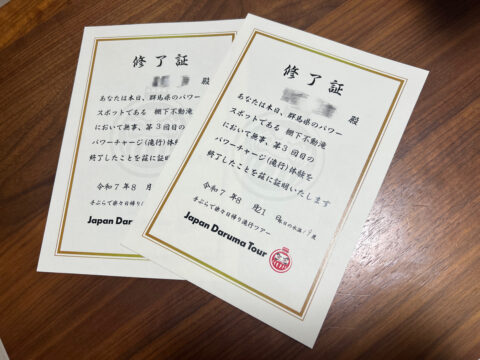 修了証
殿
あなたは本日、群馬県のパワー
スポットである 棚下不動滝
において無事、第3回目の
パワーチャージ(滝行)体験を
終了したことを茲に証明いたします
令和7年8月
手ぶらで楽々日帰り
Japan Dar
修了証
殿
あなたは本日、群馬県のパワー
スポットである 棚下不動滝
において無事、第3回目の
パワーチャージ(滝行)体験を
終了したことを茲に証明いたします
令和7年8月21日 本日の水温19度
手ぶらで楽々日帰り滝行ツアー
Japan Daruma Tour